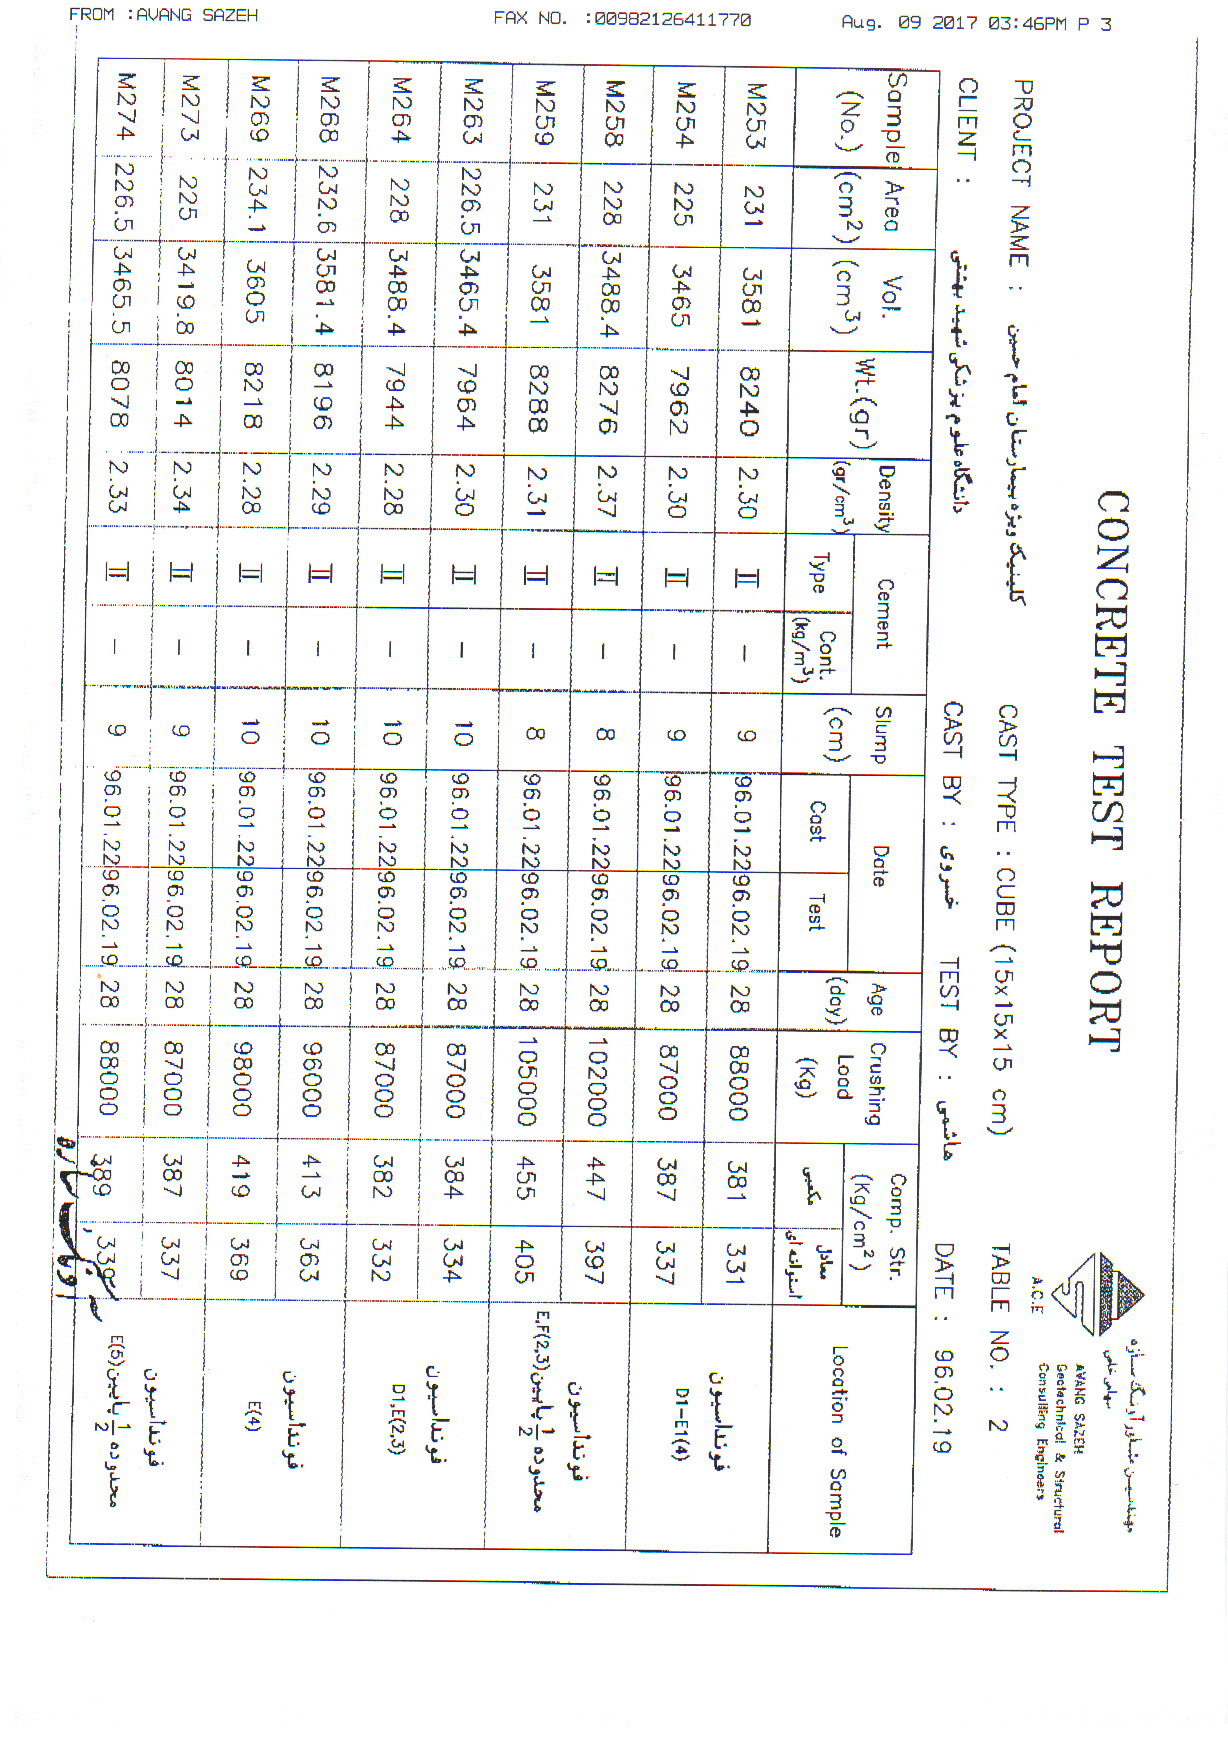 FROM :AVANG SAZEH FAX NO. :00982126411770 Aug. 09 2017 03:46PM P 3
CONCRETE TEST REPORT
مهندسین مشاور آونگ سازه
سهامی خاص
AVANG SAZEH
Geotechnical & Structural
Consulting Engineers
A.C.E
PROJECT NAME : کلینیک ویژه بیمارستان امام حسین CAST TYPE : CUBE (15x15x15 cm) TABLE NO. : 2
CLIENT : دانشگاه علوم پزشکی شهید بهشتی CAST BY : خسروی TEST BY : هاشمی DATE : 96.02.19
Sample (No.) Area (cm²) Vol. (cm³) Wt.(gr) Density (gr/cm³) Cement Type Cont. (kg/m³) Slump (cm) Date Cast Test Age (day) Crushing Load (Kg) Comp. Str. (Kg/cm²) مکعبی معادل استوانه ای Location of Sample
M253 231 3581 8240 2.30 II – 9 96.01.22 96.02.19 28 88000 381 331
فونداسیون
D1–E1(4)
M254 225 3465 7962 2.30 II – 9 96.01.22 96.02.19 28 87000 387 337
M258 228 3488.4 8276 2.37 II – 8 96.01.22 96.02.19 28 102000 447 397
فونداسیون
محدوده 1/2 پایین E,F(2,3)
M259 231 3581 8288 2.31 II – 8 96.01.22 96.02.19 28 105000 455 405
M263 226.5 3465.4 7964 2.30 II – 10 96.01.22 96.02.19 28 87000 384 334
فونداسیون
D1,E(2,3)
M264 228 3488.4 7944 2.28 II – 10 96.01.22 96.02.19 28 87000 382 332
M268 232.6 3581.4 8196 2.29 II – 10 96.01.22 96.02.19 28 96000 413 363
فونداسیون
E(4)
M269 234.1 3605 8218 2.28 II – 10 96.01.22 96.02.19 28 98000 419 369
M273 225 3419.8 8014 2.34 II – 9 96.01.22 96.02.19 28 87000 387 337
فونداسیون
محدوده 1/2 پایین E(5)
M274 226.5 3465.5 8078 2.33 II – 9 96.01.22 96.02.19 28 88000 389 339